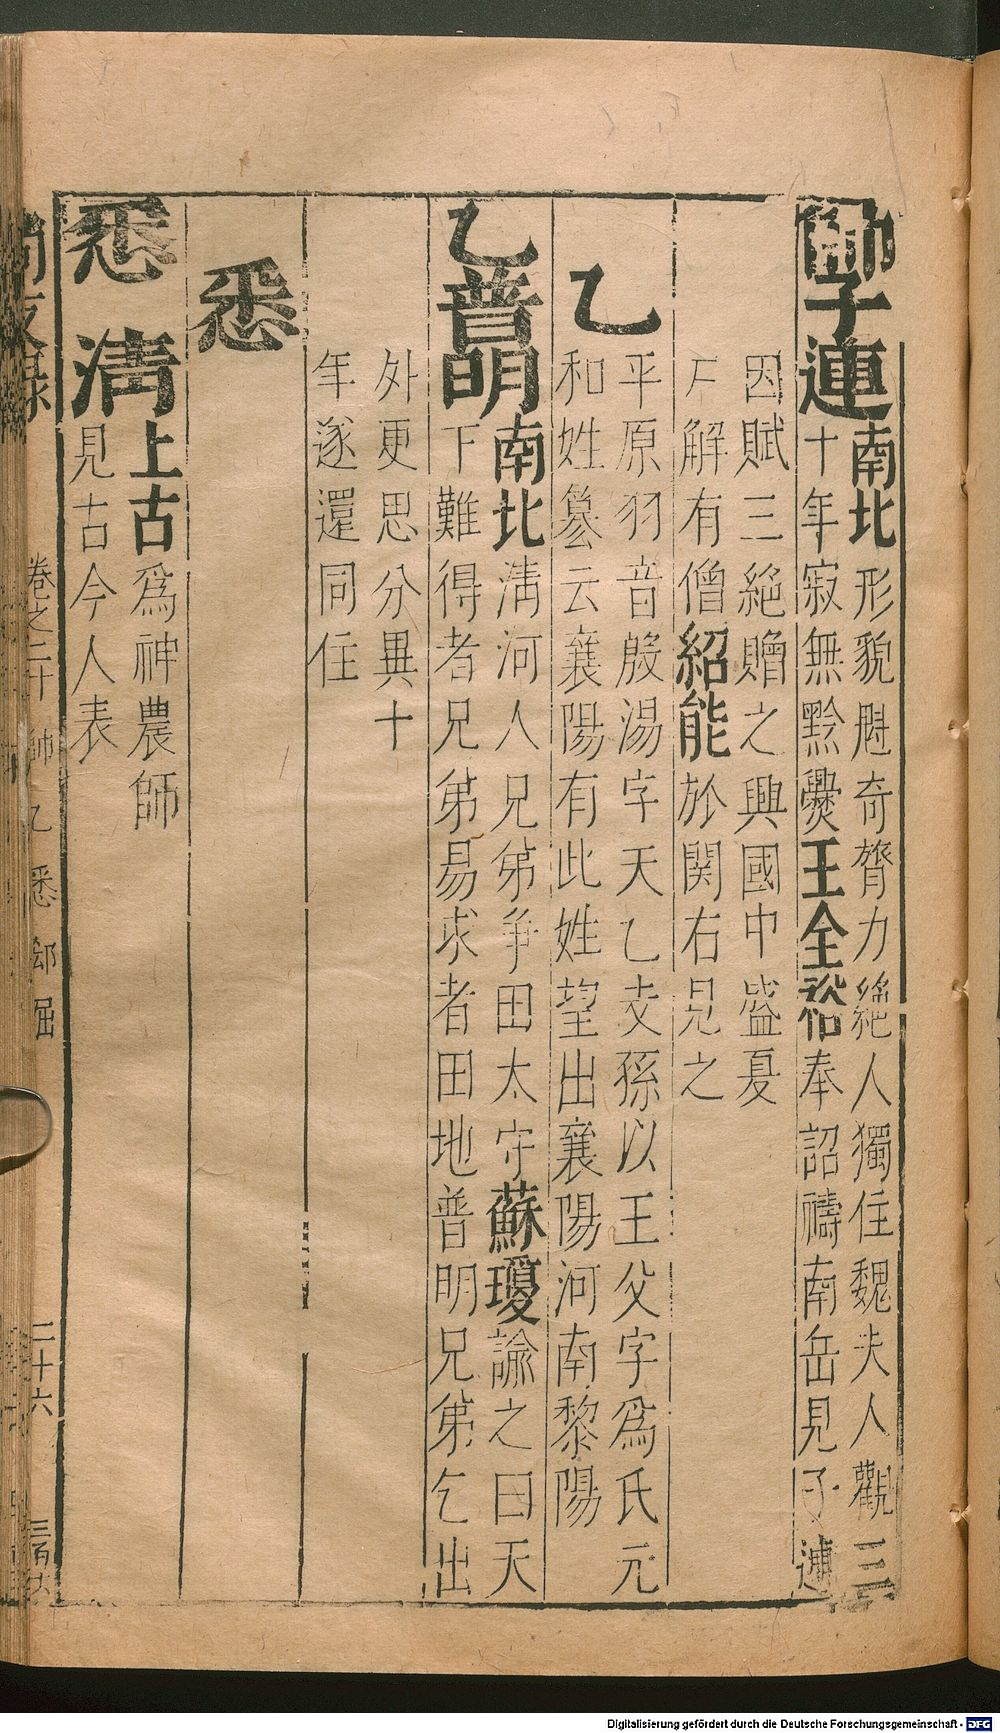 帥子連南北形貌魁奇膂力絕人獨住魏夫人觀三
十年寂無黔爨王全𥙿奉詔禱南岳見子連
因賦三絕贈之興國中盛夏
尸解有僧紹能於関右見之
乙
平原羽音殷湯字天乙支孫以王父字爲氏元
和姓纂云襄陽有此姓望出襄陽河南黎陽
乙普明南北淸河人兄弟爭田太守蘇瓊諭之曰天
下難得者兄弟易求者田地普明兄弟乞出
外更思分異十
年遂還同住
悉
悉淸上古爲神農師
見古今人表
尚友錄 卷之二十 帥 乙 悉 郄 屈 二十六